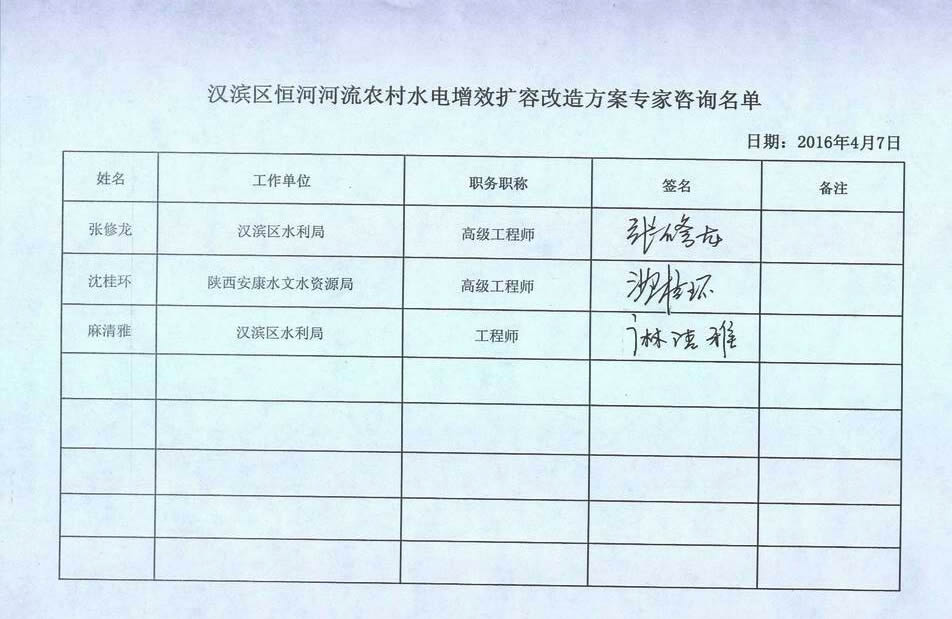 汉滨区恒河河流农村水电增效扩容改造方案专家咨询名单
日期：2016年4月7日
姓名 工作单位 职务职称 签名 备注
张修龙 汉滨区水利局 高级工程师 张修龙
沈桂环 陕西安康水文水资源局 高级工程师 沈桂环
麻清雅 汉滨区水利局 工程师 麻清雅